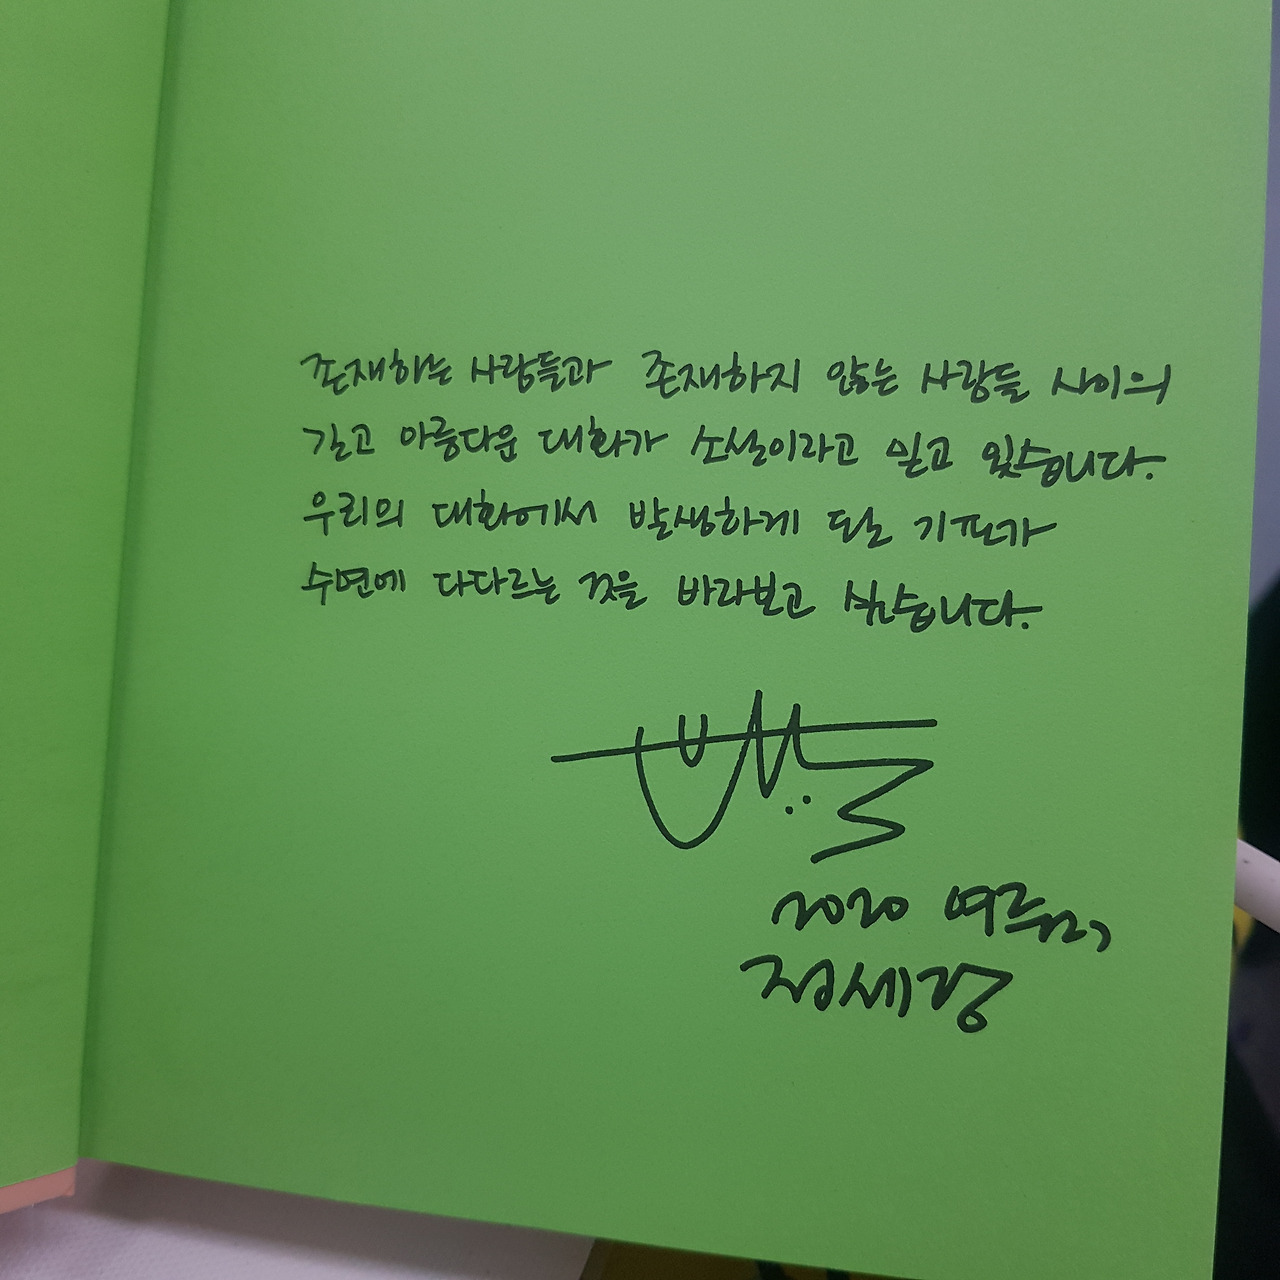 존재하는 사람들과 존재하지 않는 사람들 사이의
길고 아름다운 대화가 소설이라고 믿고 있습니다.
우리의 대화에서 발생하게 될 기포가
수면에 다다르는 것을 바라보고 싶습니다.
2020 여름,
정세랑